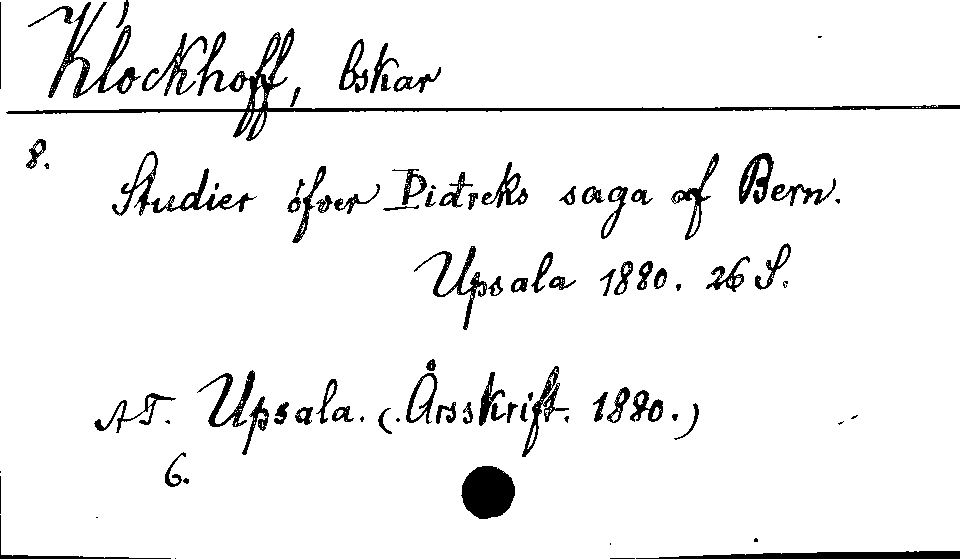 Klockhoff, Oskar
8.
Studier öfver Þiđreks saga af Bern.
Upsala 1880. 26 S.
AT. Upsala. (Årsskrift. 1880.)
6.